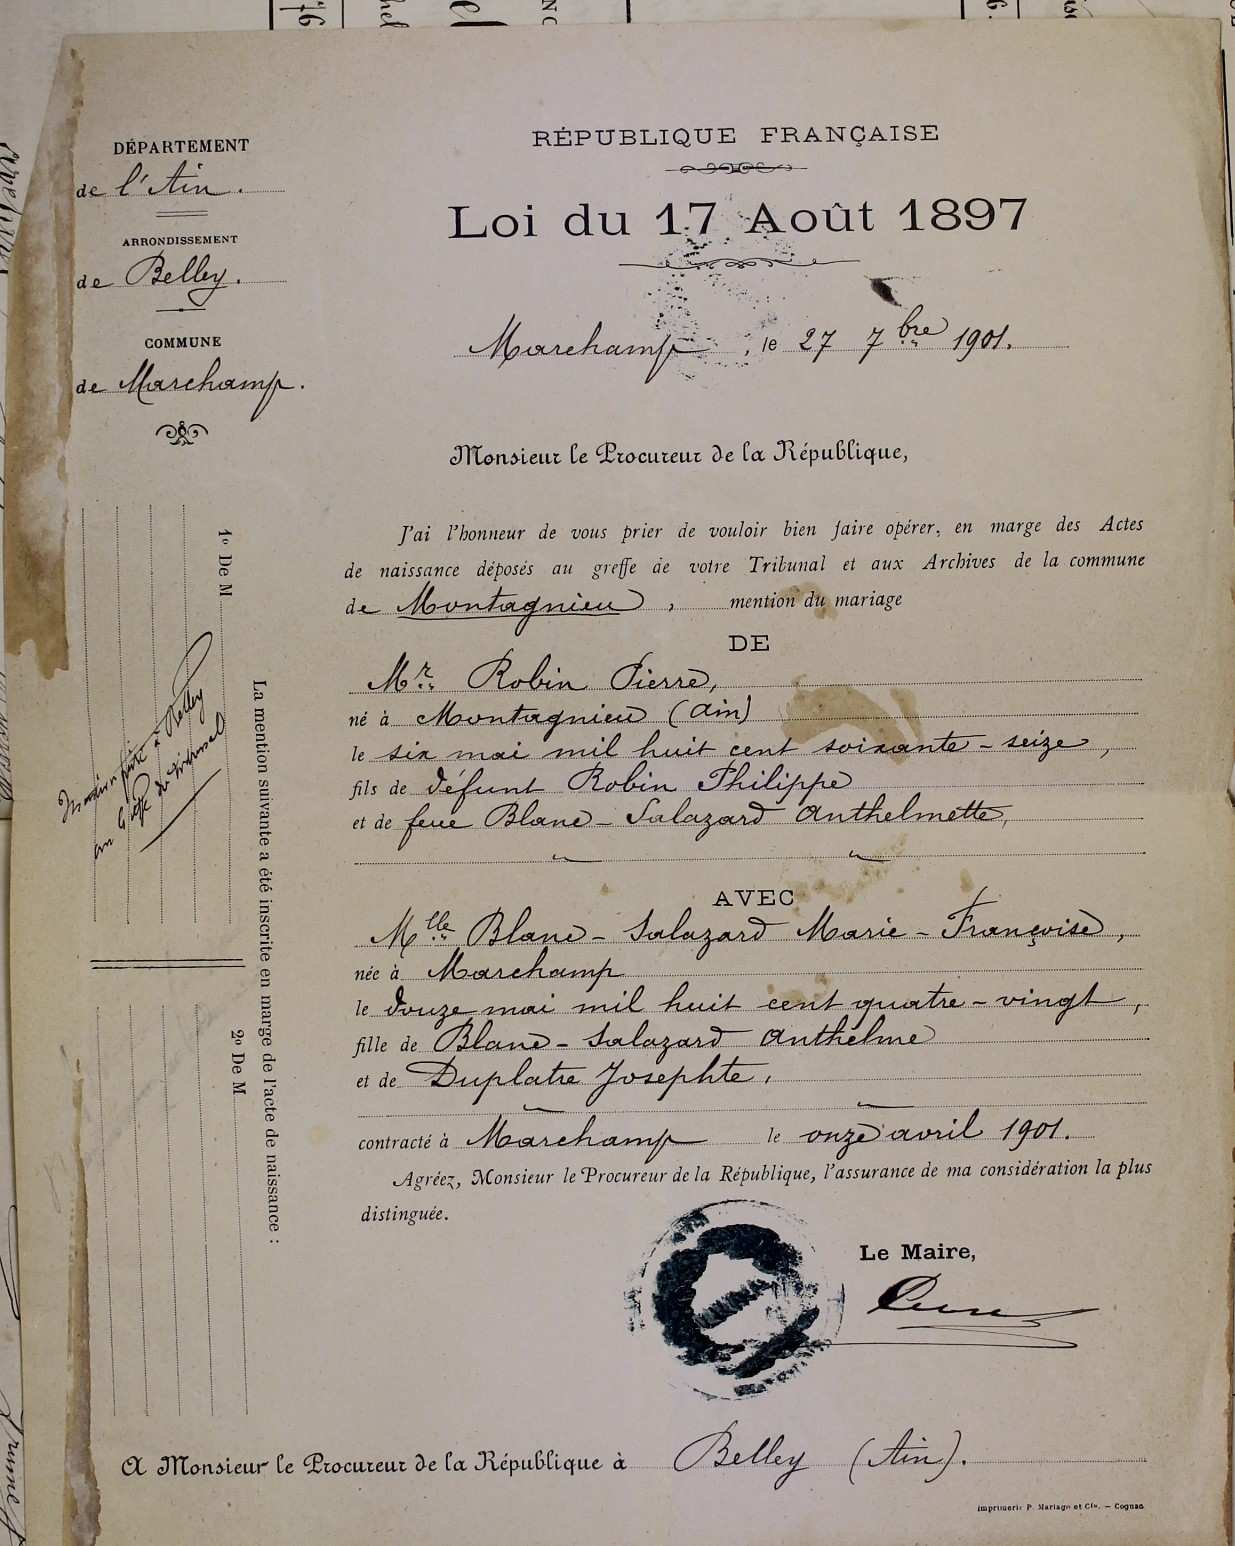 DÉPARTEMENT
de l'Ain.
ARRONDISSEMENT
de Belley.
COMMUNE
de Marchamp.
RÉPUBLIQUE FRANÇAISE
Loi du 17 Août 1897
Marchamp, le 27 7bre 1901.
Monsieur le Procureur de la République,
J'ai l'honneur de vous prier de vouloir bien faire opérer, en marge des Actes
de naissance déposés au greffe de votre Tribunal et aux Archives de la commune
de Montagnieu, mention du mariage
DE
Mr. Robin Pierre,
né à Montagnieu (Ain)
le six mai mil huit cent soixante-seize,
fils de défunt Robin Philippe
et de feue Blanc-Salazard Anthelmette,
AVEC
Mlle Blanc-Salazard Marie-Françoise,
née à Marchamp
le douze mai mil huit cent quatre-vingt,
fille de Blanc-Salazard Anthelme
et de Duplatre Josephte,
contracté à Marchamp le onze avril 1901.
Agréez, Monsieur le Procureur de la République, l'assurance de ma considération la plus
distinguée.
Le Maire,
A Monsieur le Procureur de la République à Belley (Ain).
Imprimerie P. Mariage et Cie. — Cognac
La mention suivante a été inscrite en marge de l'acte de naissance :
1o De M
Mention faite à Belley
au Greffe du tribunal
2o De M